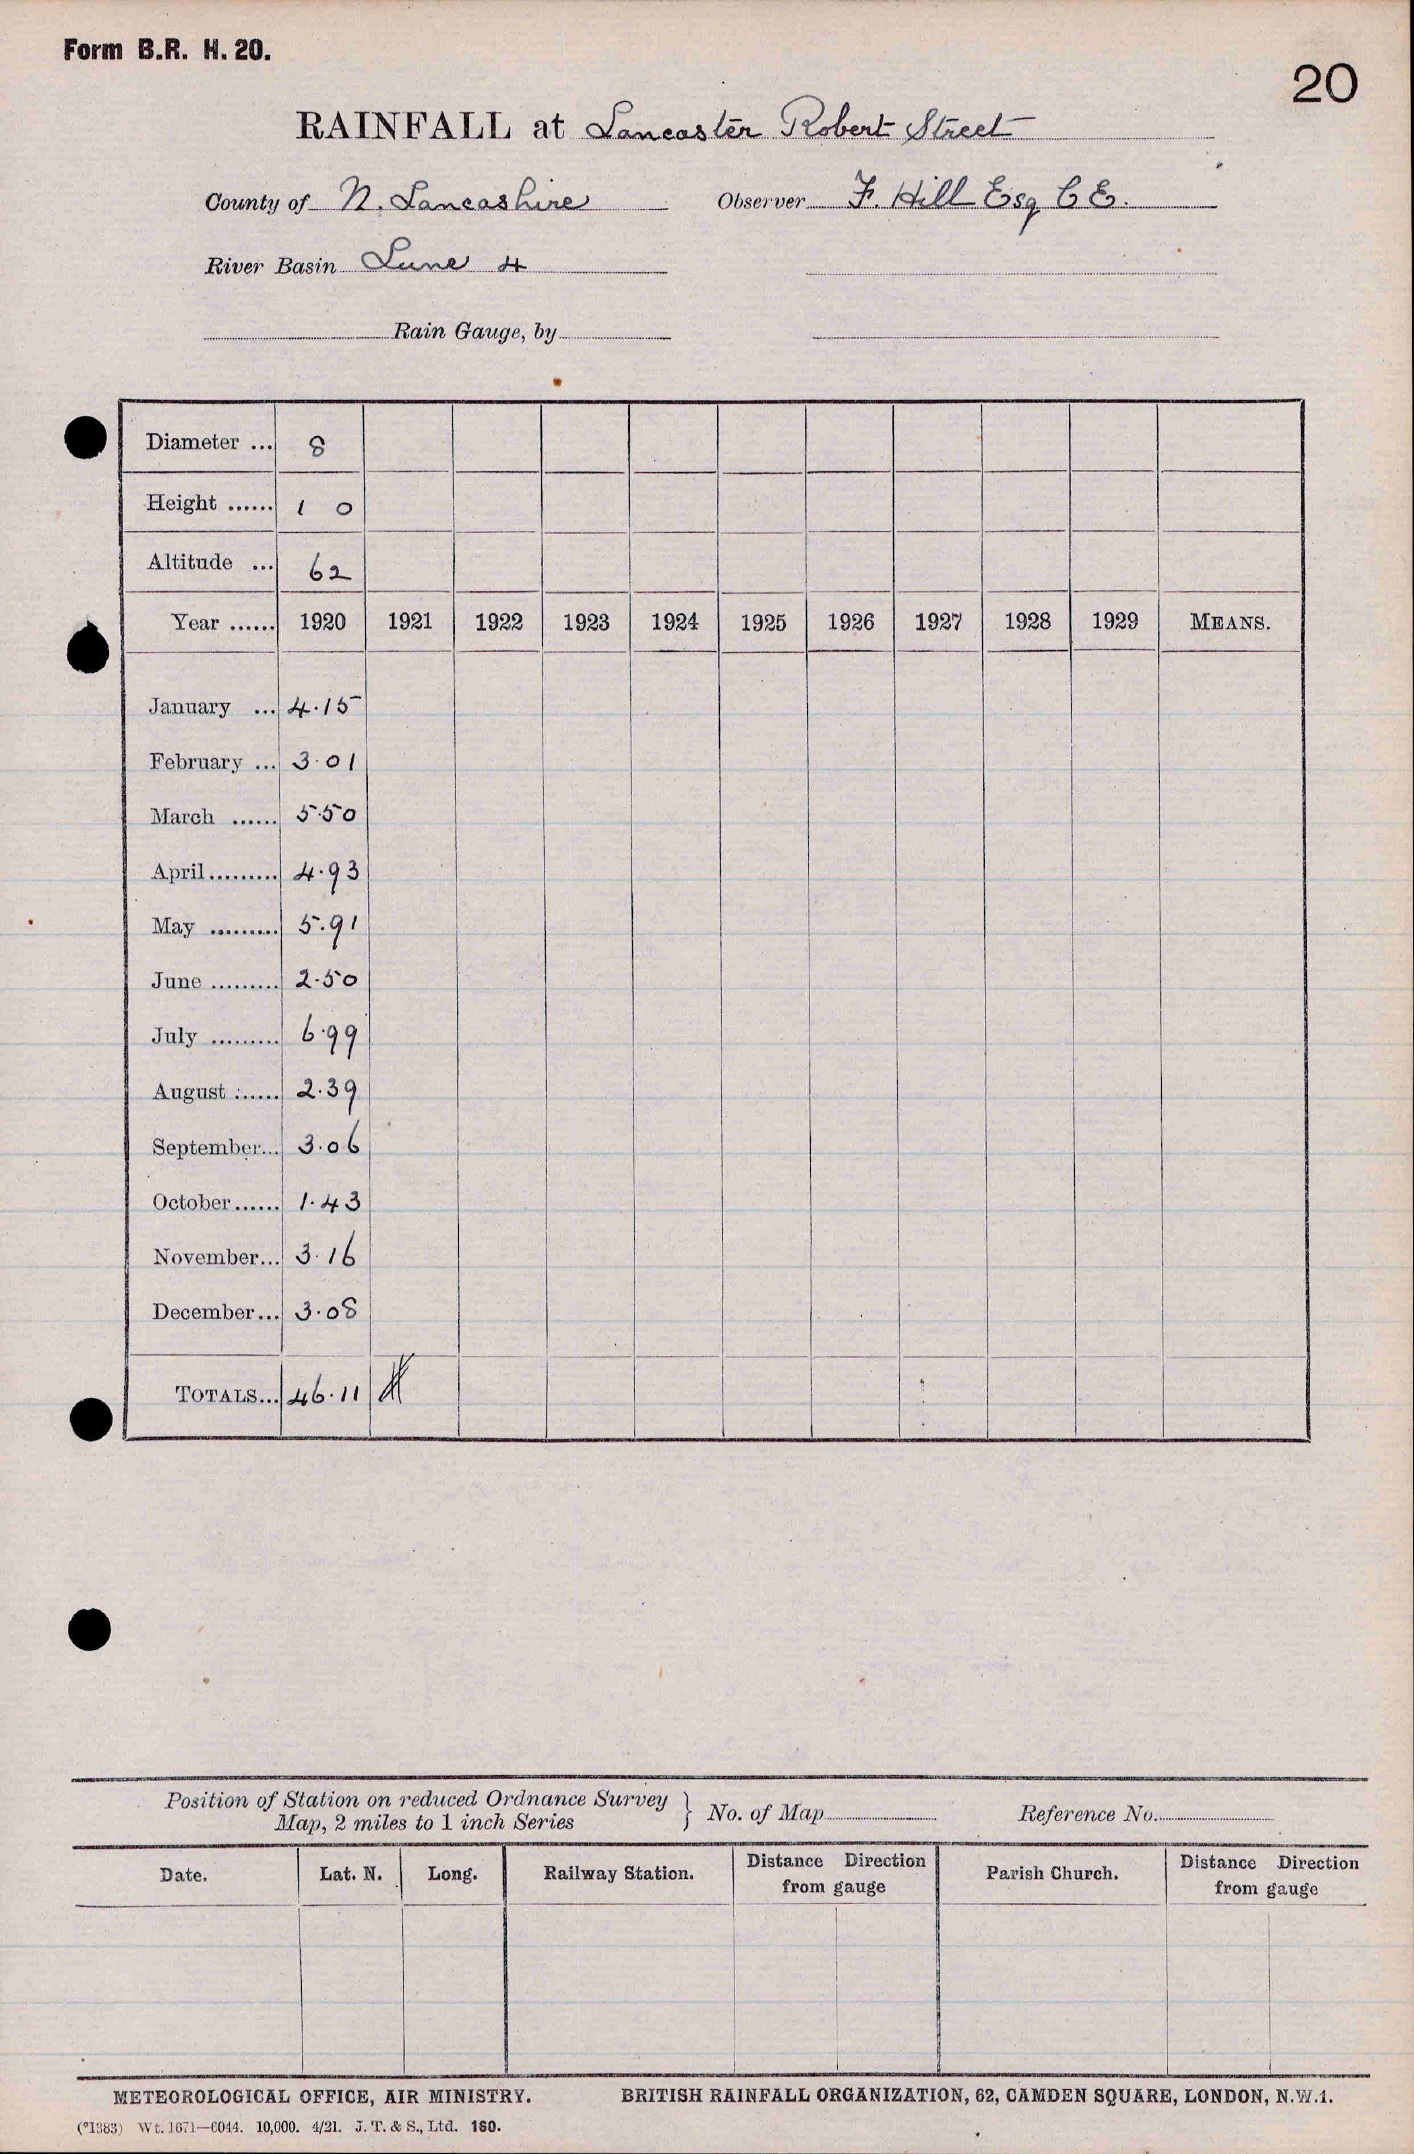 Form B.R. H. 20.
20
RAINFALL at Lancaster Robert Street
County of N. Lancashire Observer F. Hill Esq C E.
River Basin Lune 4
Rain Gauge, by
Diameter ... 8
Height ...... 1 0
Altitude ... 62
Year ...... 1920 1921 1922 1923 1924 1925 1926 1927 1928 1929 MEANS.
January ... 4.15
February ... 3.01
March ...... 5.50
April......... 4.93
May ......... 5.91
June ......... 2.50
July ......... 6.99
August ...... 2.39
September... 3.06
October...... 1.43
November... 3.16
December... 3.08
TOTALS... 46.11
Position of Station on reduced Ordnance Survey
Map, 2 miles to 1 inch Series } No. of Map Reference No.
Date. Lat. N. Long. Railway Station. Distance Direction from gauge Parish Church. Distance Direction from gauge
METEOROLOGICAL OFFICE, AIR MINISTRY. BRITISH RAINFALL ORGANIZATION, 62, CAMDEN SQUARE, LONDON, N.W.1.
(*1383) Wt. 1671—6044. 10,000. 4/21. J. T. & S., Ltd. 160.